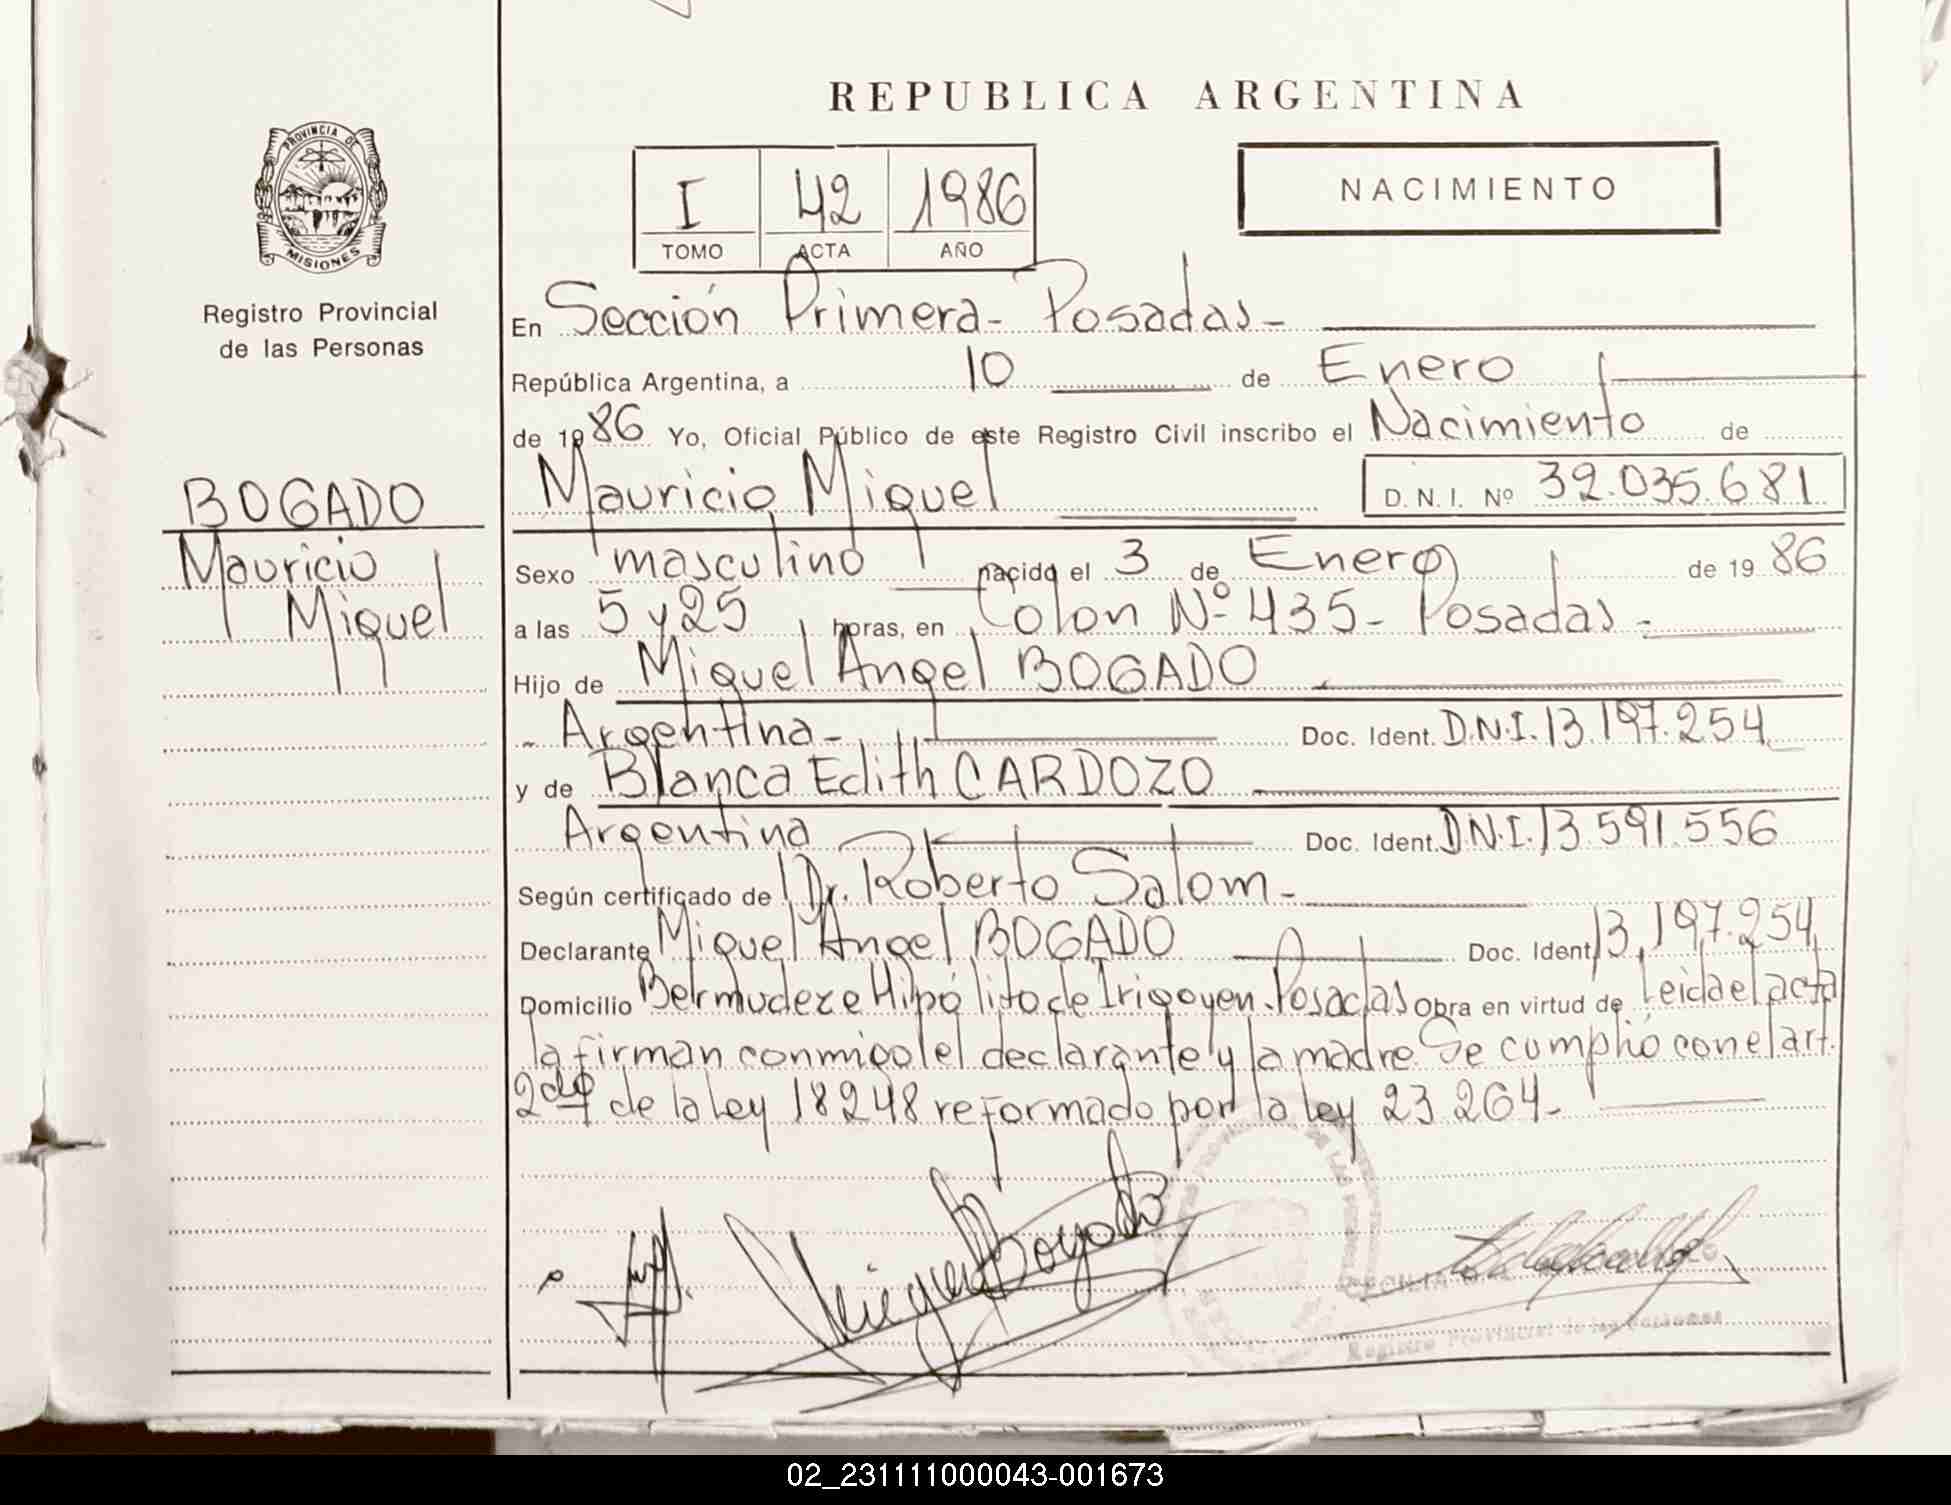 REPUBLICA ARGENTINA
PROVINCIA DE
MISIONES
Registro Provincial
de las Personas
BOGADO
Mauricio
Miguel
I 42 1986
TOMO ACTA AÑO
NACIMIENTO
En Sección Primera - Posadas -
República Argentina, a 10 de Enero
de 1986 Yo, Oficial Público de este Registro Civil inscribo el Nacimiento de
Mauricio Miguel D.N.I. Nº 32.035.681
Sexo masculino nacido el 3 de Enero de 1986
a las 5 y 25 horas, en Colon Nº 435 - Posadas -
Hijo de Miguel Angel BOGADO
- Argentina - Doc. Ident. D.N.I. 13.197.254
y de Blanca Edith CARDOZO
Argentina Doc. Ident. D.N.I. 13.591.556
Según certificado de Dr. Roberto Salom -
Declarante Miguel Angel BOGADO Doc. Ident. 13.197.254
Domicilio Bermudez e Hipólito de Irigoyen - Posadas Obra en virtud de Leida el acta
la firman conmigo el declarante y la madre. Se cumplió con el art.
2do de la ley 18248 reformado por la ley 23.264 -
Miguel Bogado
Registro Provincial de las Personas
02_231111000043-001673